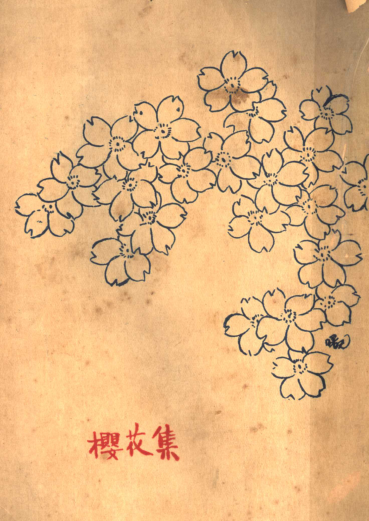 櫻花集